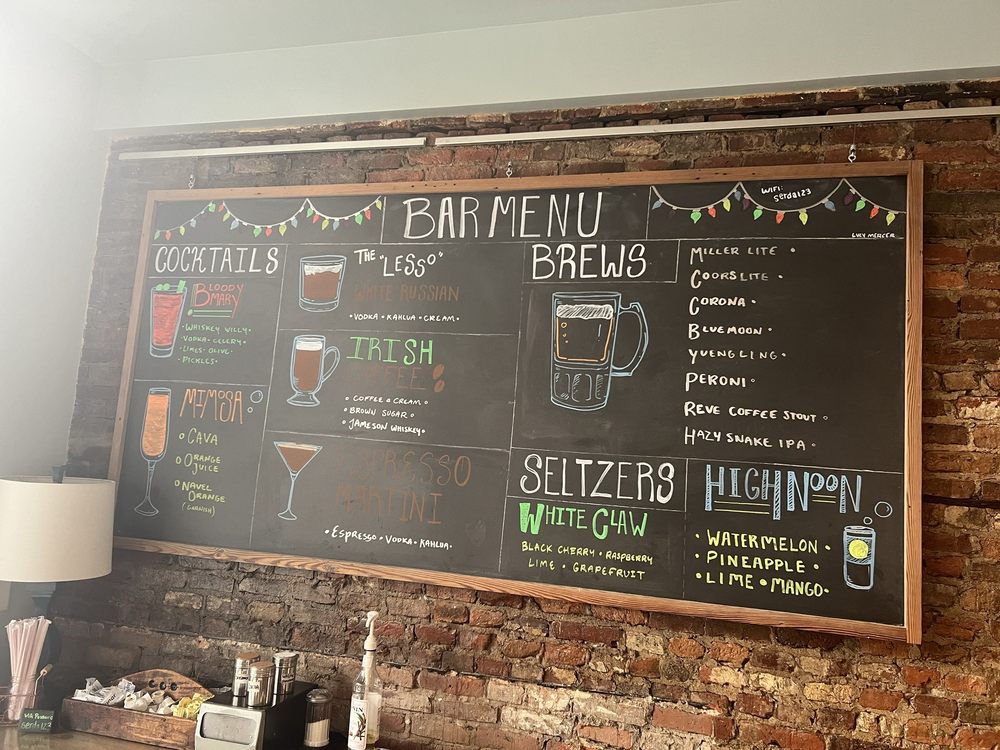 BAR MENU
WIFI:
serda123
LUCY MERCER
COCKTAILS
BLOODY
MARY
• WHISKEY WILLY •
VODKA • CELERY •
• LIMES • OLIVE •
PICKLES •
MIMOSA
• CAVA
• ORANGE
JUICE
• NAVEL
ORANGE
(GARNISH)
THE "LESSO"
WHITE RUSSIAN
• VODKA • KAHLUA • CREAM •
IRISH
COFFEE
• COFFEE & CREAM •
• BROWN SUGAR •
• JAMESON WHISKEY •
ESPRESSO
MARTINI
• ESPRESSO • VODKA • KAHLUA •
BREWS
MILLER LITE •
COORS LITE •
CORONA •
BLUE MOON •
YUENGLING •
PERONI •
REVE COFFEE STOUT •
HAZY SNAKE IPA •
SELTZERS
WHITE CLAW
BLACK CHERRY • RASPBERRY
LIME • GRAPEFRUIT
HIGH NOON
• WATERMELON •
• PINEAPPLE •
• LIME • MANGO •
Wifi Password
serda123